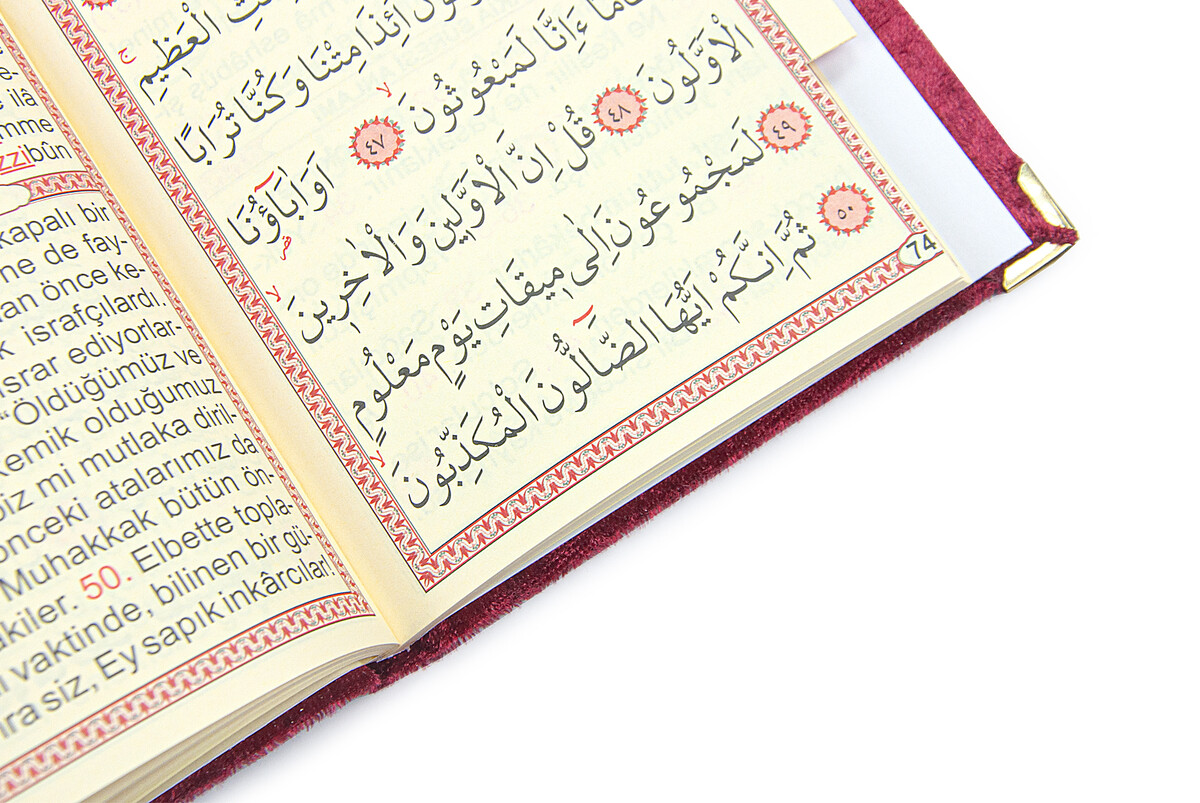 الْعَظ۪يمِ ج
ؤُنَ اَئِذَا مِتْنَا وَكُنَّا تُرَابًا
ءَاِنَّا لَمَبْعُوثُونَ لا ٤٧ اَوَاٰبَٓاؤُ۬نَا
الْاَوَّلُونَ ٤٨ قُلْ اِنَّ الْاَوَّل۪ينَ وَالْاٰخِر۪ينَ لا
٤٩ لَمَجْمُوعُونَ اِلٰى م۪يقَاتِ يَوْمٍ مَعْلُومٍ لا
٥٠ ثُمَّ اِنَّكُمْ اَيُّهَا الضَّٓالُّونَ الْمُكَذِّبُونَ
74
ilâ
mme
zzibûn
kapalı bir
ne de fay-
an önce ke-
k israfçılardı.
srar ediyorlar-
"Öldüğümüz ve
kemik olduğumuz
biz mi mutlaka diril-
önceki atalarımız da
Muhakkak bütün ön-
akiler. 50. Elbette topla-
vaktinde, bilinen bir gü-
ra siz, Ey sapık inkârcılar!